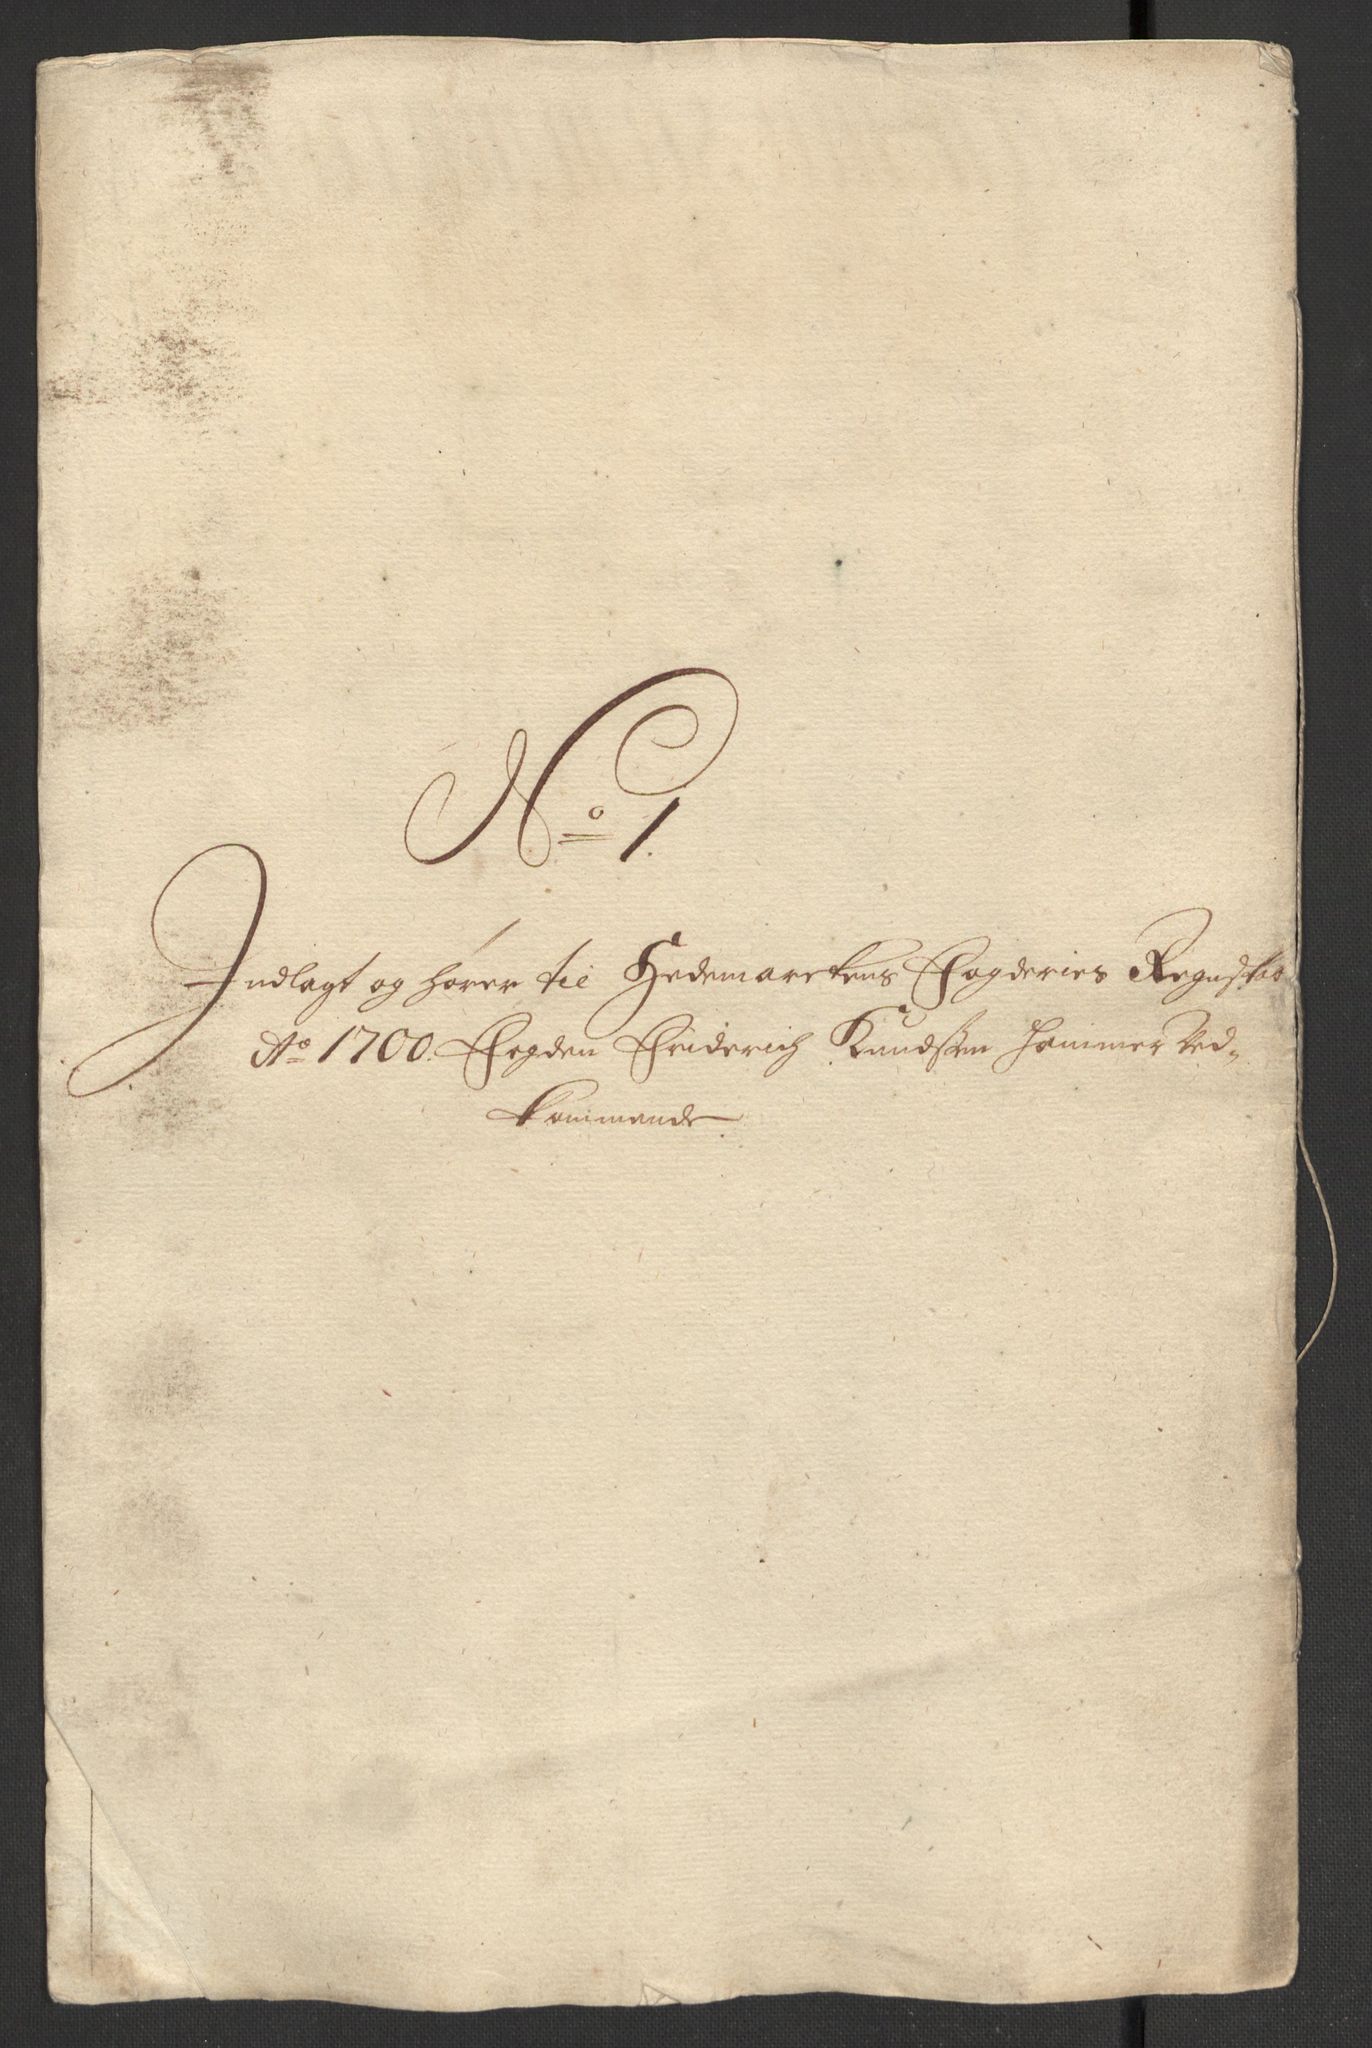 No 1.
Indlagt og hörer til Hedemarckens Fogderies Regnskab
Ao 1700. Fogden Friderich Knudsen Hammer Ved-
kommende